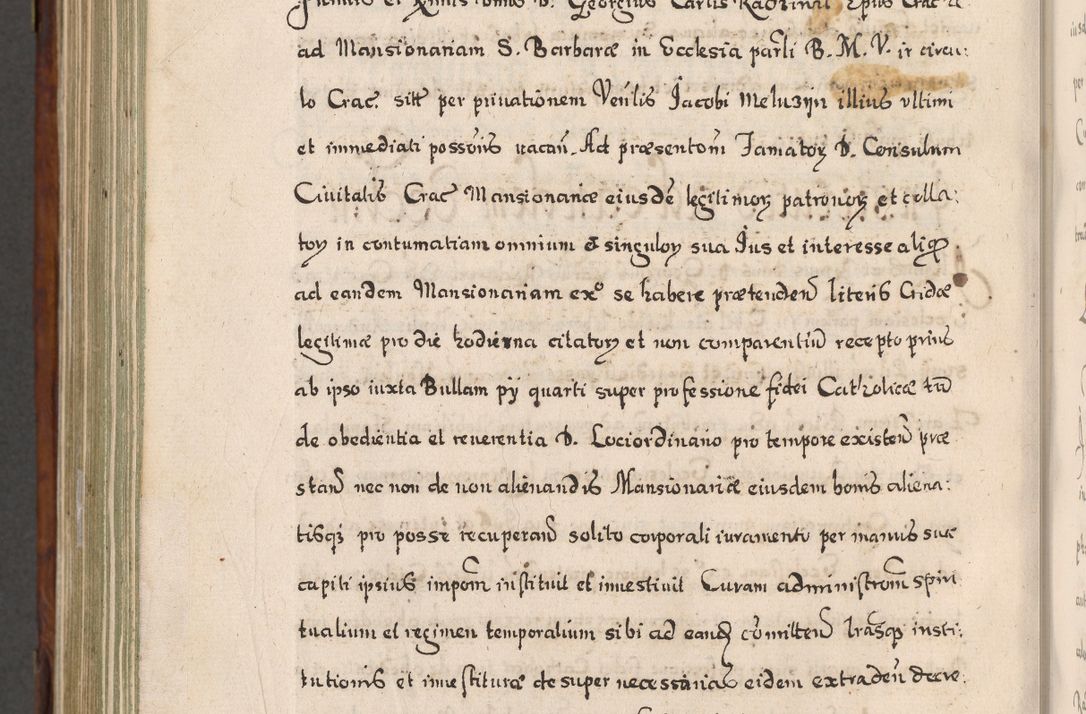 Illmus et Rmus Dnus D. Georgius Carlis Radziwil Epus Crac
ad Mansionariam S. Barbaræ in Ecclesia parli B. M. V. in circu:
lo Crac. sitt per priuationem Ven'lis Jacobi Meluzijn illius vltimi
et immediati possoris vacan. Ad præsentom Famator D. Consulum
Ciuitatis Crac Mansionariæ eiusdē legitimor patronor et colla:
tor in contumatiam omnium & singulor sua Ius et interesse aliq
ad eandem Mansionariam exo se habere prætenden literis Cridæ
legitimæ pro die hodierna citator et non comparentiū recepto prius
ab ipso iuxta Bullam pij quarti super professione fidei Catholicæ tū
de obedientia et reuerentia D. Lociordinario pro tempore existen præ
stand nec non de non alienandis Mansionariæ eiusdem bonis aliena:
tisq pro posse recuperand solito corporali iuramento per manus suæ
capiti ipsius impom instituit et inuestiuit Curam administrom spiri
tualium et regimen temporalium sibi ad eand comitten lrasq insti:
tutionis et inuestituræ desuper necessarias eidem extraden decre: